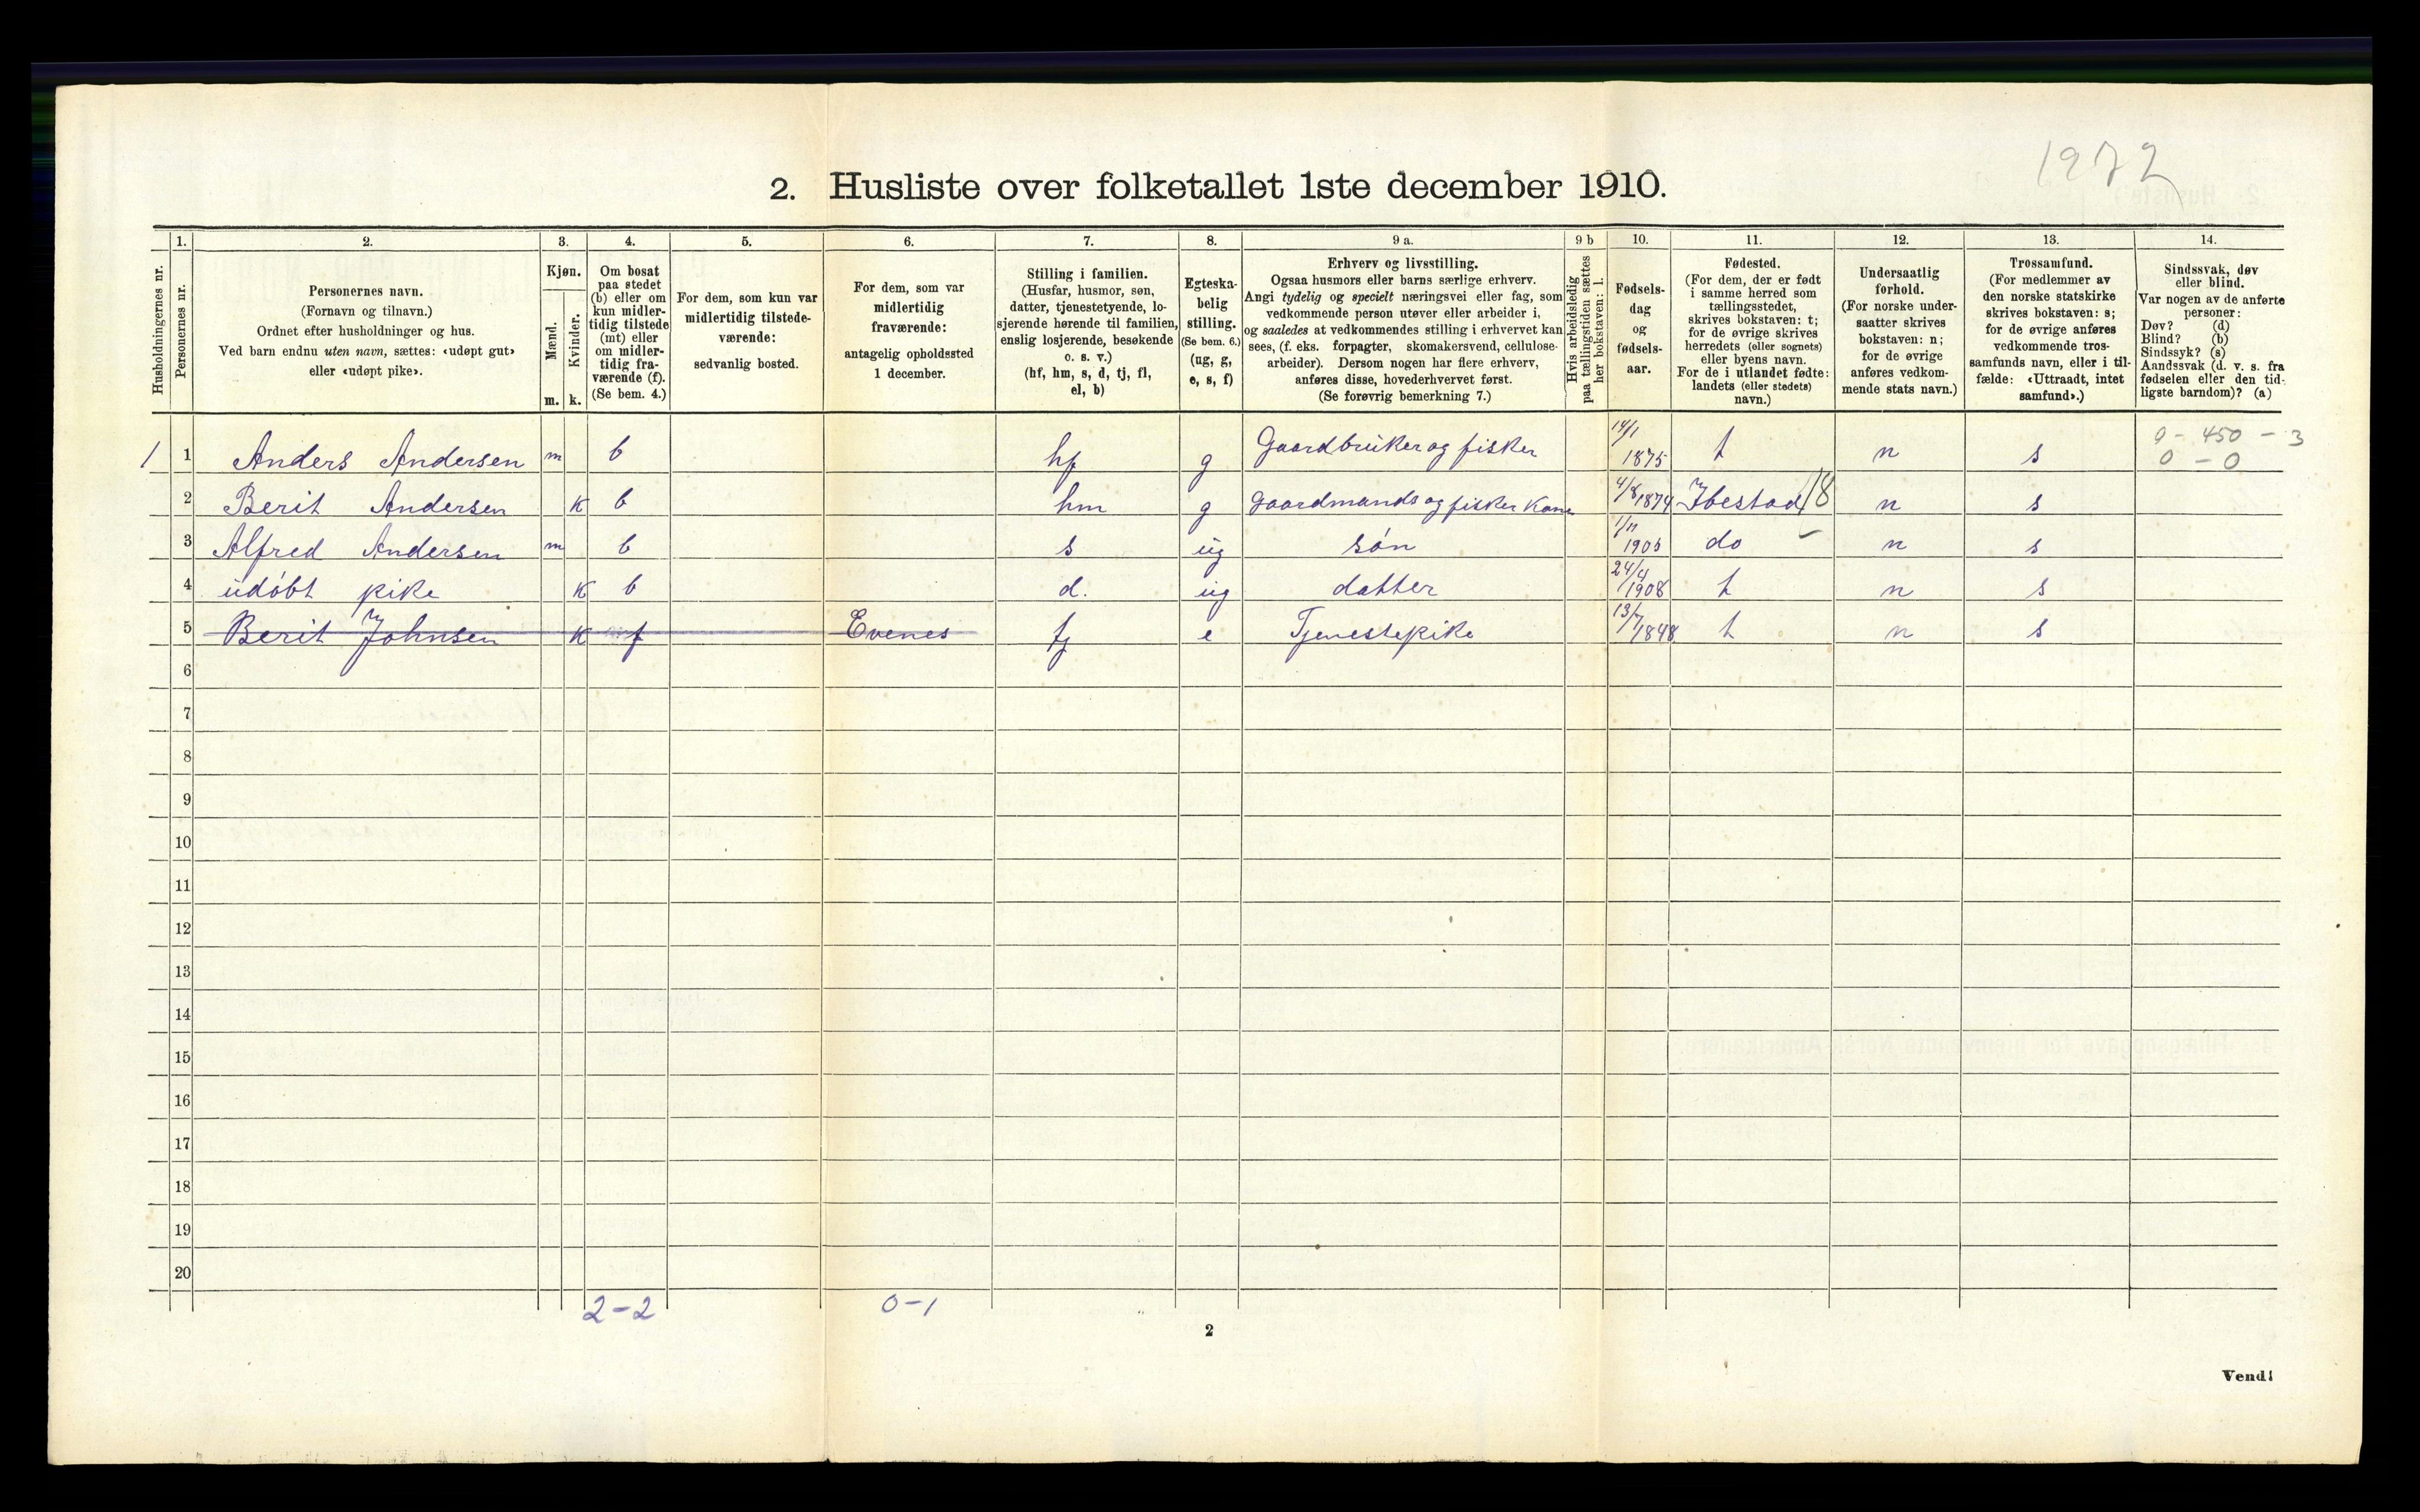 1972
2. Husliste over folketallet 1ste december 1910.
Husholdningernes nr.
1.
Personernes nr.
2.
Personernes navn.
(Fornavn og tilnavn.)
Ordnet efter husholdninger og hus.
Ved barn endnu uten navn, sættes: «udøpt gut»
eller «udøpt pike».
3.
Kjøn.
Mænd.
Kvinder.
m. k.
4.
Om bosat
paa stedet
(b) eller om
kun midler-
tidig tilstede
(mt) eller
om midler-
tidig fra-
værende (f).
(Se bem. 4.)
5.
For dem, som kun var
midlertidig tilstede-
værende:
sedvanlig bosted.
6.
For dem, som var
midlertidig
fraværende:
antagelig opholdssted
1 december.
7.
Stilling i familien.
(Husfar, husmor, søn,
datter, tjenestetyende, lo-
sjerende hørende til familien,
enslig losjerende, besøkende
o. s. v.)
(hf, hm, s, d, tj, fl,
el, b)
8.
Egteska-
belig
stilling.
(Se bem. 6.)
(ug, g,
e, s, f)
9 a.
Erhverv og livsstilling.
Ogsaa husmors eller barns særlige erhverv.
Angi tydelig og specielt næringsvei eller fag, som
vedkommende person utøver eller arbeider i,
og saaledes at vedkommendes stilling i erhvervet kan
sees, (f. eks. forpagter, skomakersvend, cellulose-
arbeider). Dersom nogen har flere erhverv,
anføres disse, hovederhvervet først.
(Se forøvrig bemerkning 7.)
9 b
Hvis arbeidsledig
paa tællingstiden sættes
her bokstaven: l.
10.
Fødsels-
dag
og
fødsels-
aar.
11.
Fødested.
(For dem, der er født
i samme herred som
tællingsstedet,
skrives bokstaven: t;
for de øvrige skrives
herredets (eller sognets)
eller byens navn.
For de i utlandet fødte:
landets (eller stedets)
navn.)
12.
Undersaatlig
forhold.
(For norske under-
saatter skrives
bokstaven: n;
for de øvrige
anføres vedkom-
mende stats navn.)
13.
Trossamfund.
(For medlemmer av
den norske statskirke
skrives bokstaven: s;
for de øvrige anføres
vedkommende tros-
samfunds navn, eller i til-
fælde: «Uttraadt, intet
samfund».)
14.
Sindssvak, døv
eller blind.
Var nogen av de anførte
personer:
Døv? (d)
Blind? (b)
Sindssyk? (s)
Aandssvak (d. v. s. fra
fødselen eller den tid-
ligste barndom)? (a)
1 1 Anders Andersen m b hf g Gaardbruker og fisker 14/1 1875 t n s 0 - 450 - 3
0 - 0
2 Berit Andersen k b hm g Gaardmands og fisker Kone 4/8 1874 Ibestad 18 n s
3 Alfred Andersen m b s ug søn 1/11 1905 do - n s
4 udøbt pike k b d. ug datter 24/4 1908 t n s
5 Berit Johnsen k f Evenes tj e Tjenestepike 13/7 1848 t n s
6
7
8
9
10
11
12
13
14
15
16
17
18
19
20
2-2 0-1
2
Vend!